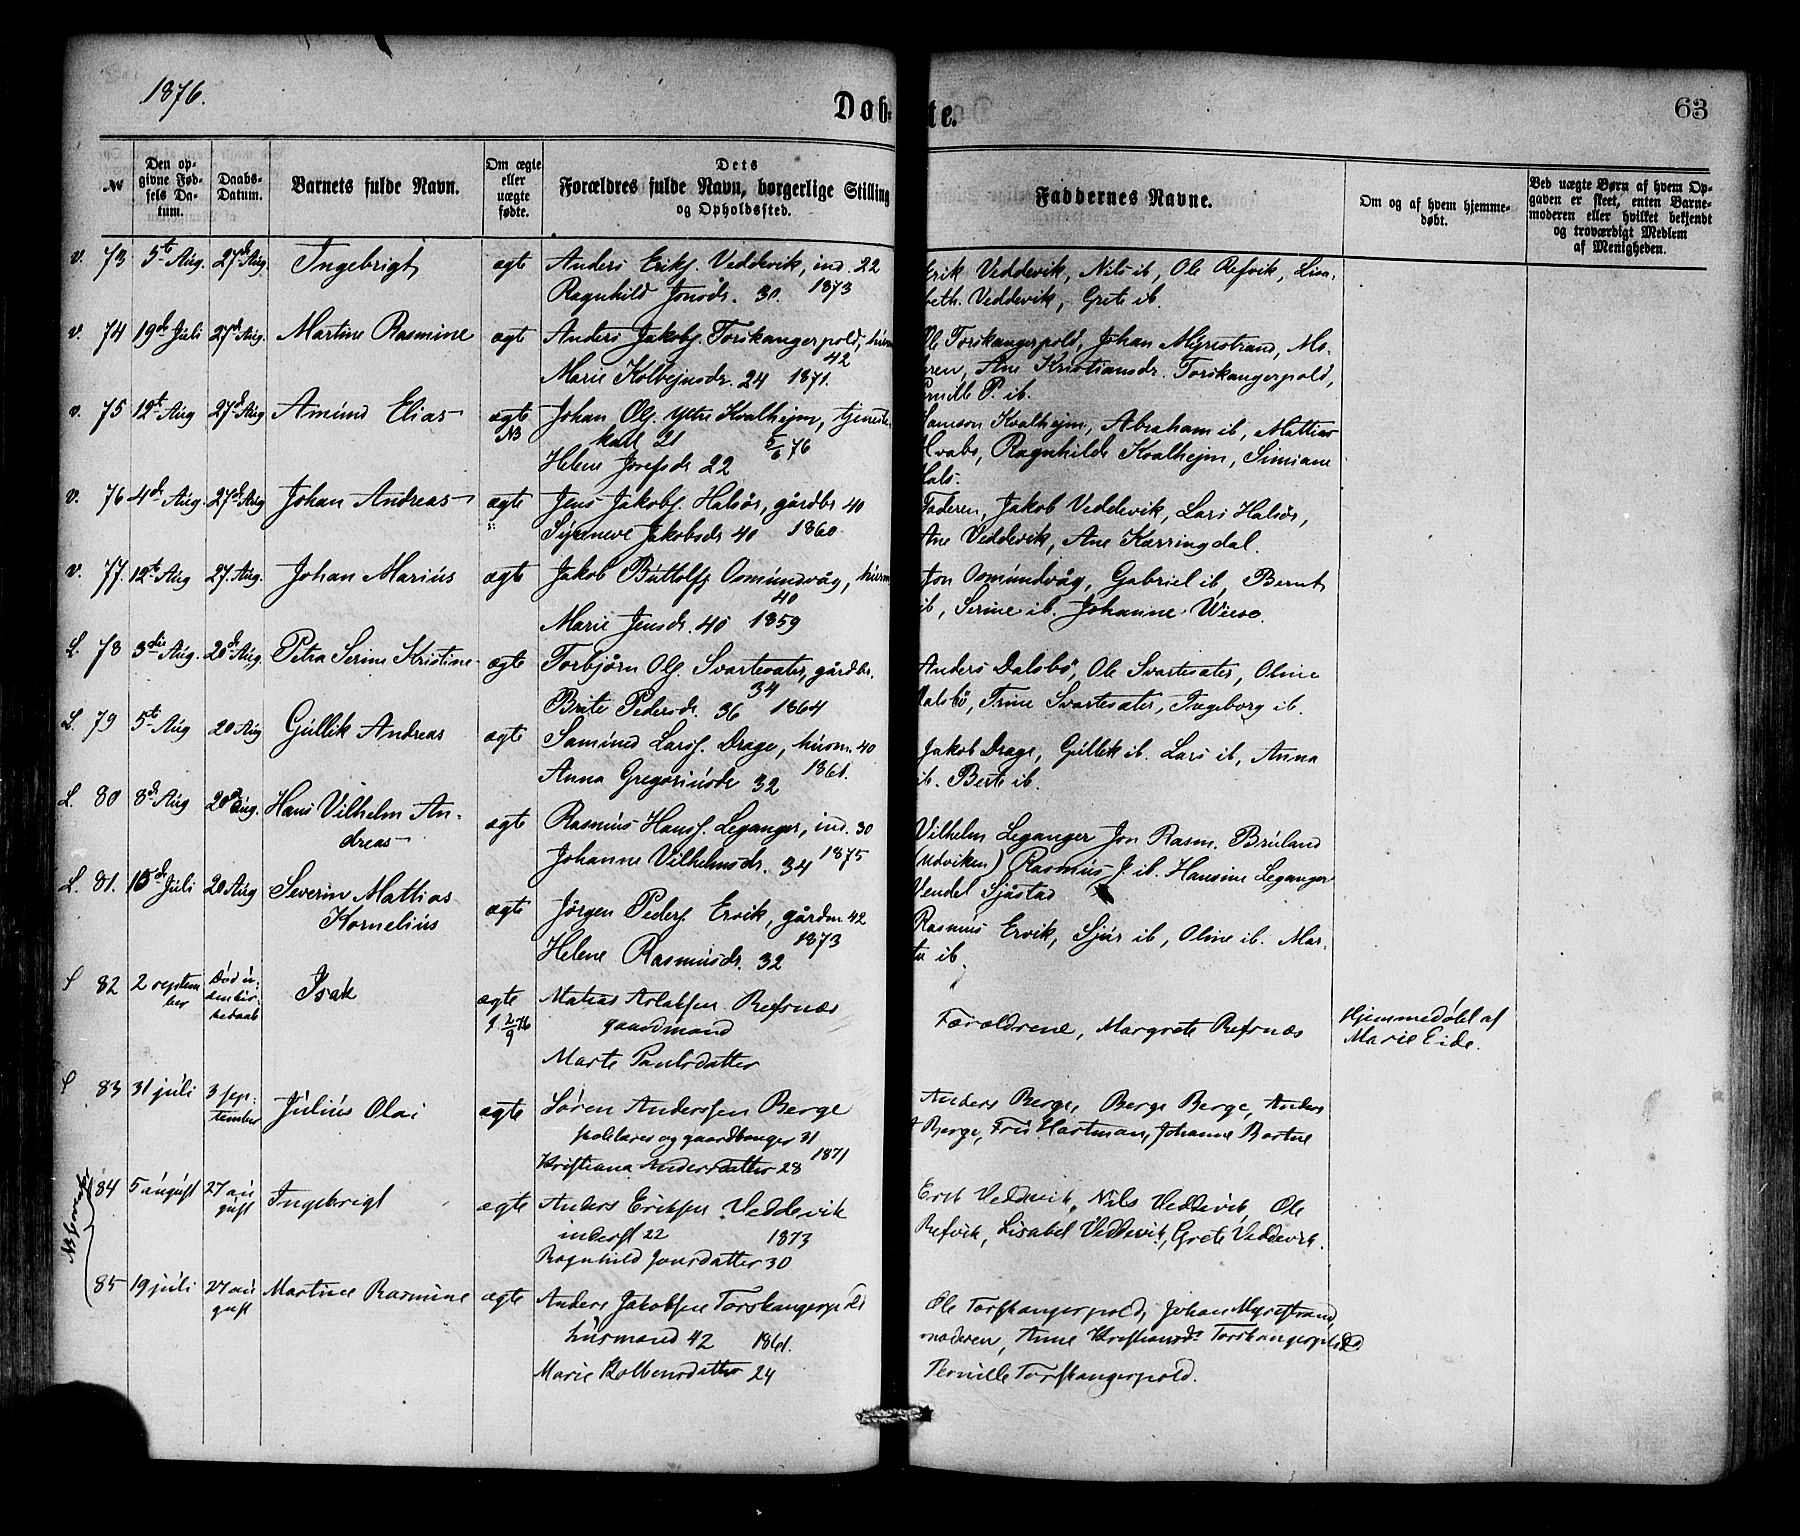 1876.
Døbte.
63
№
Den opgivne Fødsels Datum.
Daabs-Datum.
Barnets fulde Navn.
Om ægte eller uægte fødte.
Dets Forældres fulde Navn, borgerlige Stilling og Opholdssted.
Faddernes Navne.
Om og af hvem hjemmedøbt.
Ved uægte Børn af hvem Opgaven er skeet, enten Barnemoderen eller hvilket bekjendt og troværdigt Medlem af Menigheden.
v. 73 5te Aug. 27de Aug. Ingebrigt ægte Anders Eriks. Veddevik, ind. 22 Erik Veddevik, Nils ib, Ole Refvik, Lisa-
Ragnhild Jonsdr. 30. 1873 beth. Veddevik, Grete ib.
v. 74 19de Juli 27de Aug. Martine Rasmine ægte Anders Jakobs. Torskangerpold, husm Ole Torskangerpold, Johan Myrestrand, Mo-
42
Marie Kolbejnsdr. 24 1871. deren, Ane Kristiansdr. Torskangerpold,
Pernille P. ib.
v. 75 12te Aug 27de Aug Amund Elias ægte Johan Ols. Ytre Kvalhejm, tjeneste- Samson Kvalhejm, Abraham ib, Mattias
NB karl 21 5/6 76 Hvabs, Ragnhilde Kvalhejm, Simiane
Helene Josefsdr 22 Hals.
v. 76 4de Aug. 27de Aug Johan Andreas ægte Jens Jakobs. Halsør, gårdbr 40 Faderen, Jakob Veddevik, Lars Halsør,
Synneve Jakobsdr 40 1860. Ane Veddevik, Ane Kærringdal.
v. 77. 12te Aug 27. Aug. Johan Marius ægte Jakob Buttolfs Osmundvåg, husm Jon Osmundvåg, Gabriel ib, Bernt
40
Marie Jensdr. 40 1859 ib, Serine ib. Johanne Wiese.
L. 78 3die Aug. 20de Aug. Petra Serine Kristine ægte Torbjörn Ols. Svartesæter, gårdbr. Anders Dalsbö, Ole Svartesæter, Oline
34
Brite Pedersdr. 36 1864 Dalsbö, Trine Svartesæter, Ingeborg ib.
L. 79 5te Aug 20 Aug Gullik Andreas ægte Samund Larss. Drage, husm. 40 Jakob Drage, Gullik ib. Lars ib, Anna
Anna Gregoriusdr 32 1861. ib. Berte ib.
L. 80 8de Aug 20de Aug. Hans Vilhelm An- ægte Rasmus Hanss. Leganger, ind. 30 Vilhelm Leganger Jon Rasm. Bruland
dreas Johanne Vilhelmsdr. 34 1875 (Udviken) Rasmus J. ib. Hansine Leganger
Vendel Sjåstad
L. 81. 15de Juli 20 Aug Severin Mattias ægte Jörgen Peders. Ervik, gårdm 42 Rasmus Ervik, Sjur ib, Oline ib. Mar-
Kornelius Helene Rasmusdr. 32 1873 ta ib.
S 82 2 septem- Død u- Isak ægte Matias Aslaksen Refsnæs Forældrene, Margrete Refsnæs Hjemmedøbt af
ber gaardmand Marie Eide.
Marte Paulsdatter
S 83 31 juli 3 sep- Julius Olai ægte Søren Anderssen Berge Anders Berge, Berge Berge, Anders
tember skolelærer og gaardbruger 31 Berge, Hartman, Johanne
Kristiana Andersdatter 28 1871
84 5 august 27 au- Ingebrigt ægte Anders Eriksen Veddevik Erik Veddevik, Nils Veddevik, Ole
gust inderst 22 1873 Refvik, Lisabet Veddevik, Grete Veddevik.
Ragnhild Jonsdatter 30
85 19 juli 27 au- Martine Rasmine ægte Anders Jakobsen Torskangerpold Ole Torskangerpold, Johan Myrestrand,
gust husmand 42 1861. moderen, Anne Kristiansd. Torskangerpold
Marie Kolbensdatter 24 Pernille Torskangerpold.